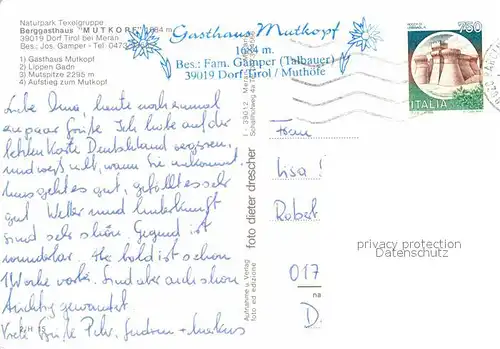 Naturpark Texelgruppe
Berggasthaus "MUTKOPF" 1684 m
39019 Dorf Tirol bei Meran
Bes.: Jos. Gamper - Tel. 0473
1) Gasthaus Mutkopf
2) Lippen Gadn
3) Mutspitze 2295 m
4) Aufstieg zum Mutkopf
Gasthaus Mutkopf
1684 m.
Bes.: Fam. Gamper (Talbauer)
39019 Dorf Tirol / Muthöfe
750
ITALIA
Liebe Oma, heute noch einmal
ein paar Grüße. Ich habe auf der
letzten Karte Deutschland vergessen,
und weiß nicht, wann sie ankommt.
Uns geht es gut, gefällt es sehr
gut. Wetter und Unterkunft
sind sehr schön. Gegend ist
wunderbar. bald ist schon
1 Woche vorbei. Sind aber auch schon
tüchtig gewandert.
Viele Grüße Gudrun + Markus
Frau
Lisa
Robert
017
na
D.
foto dieter drescher
Aufnahme u. Verlag
foto ed edizione
I - 39012 Meran
privacy protection
Datenschutz